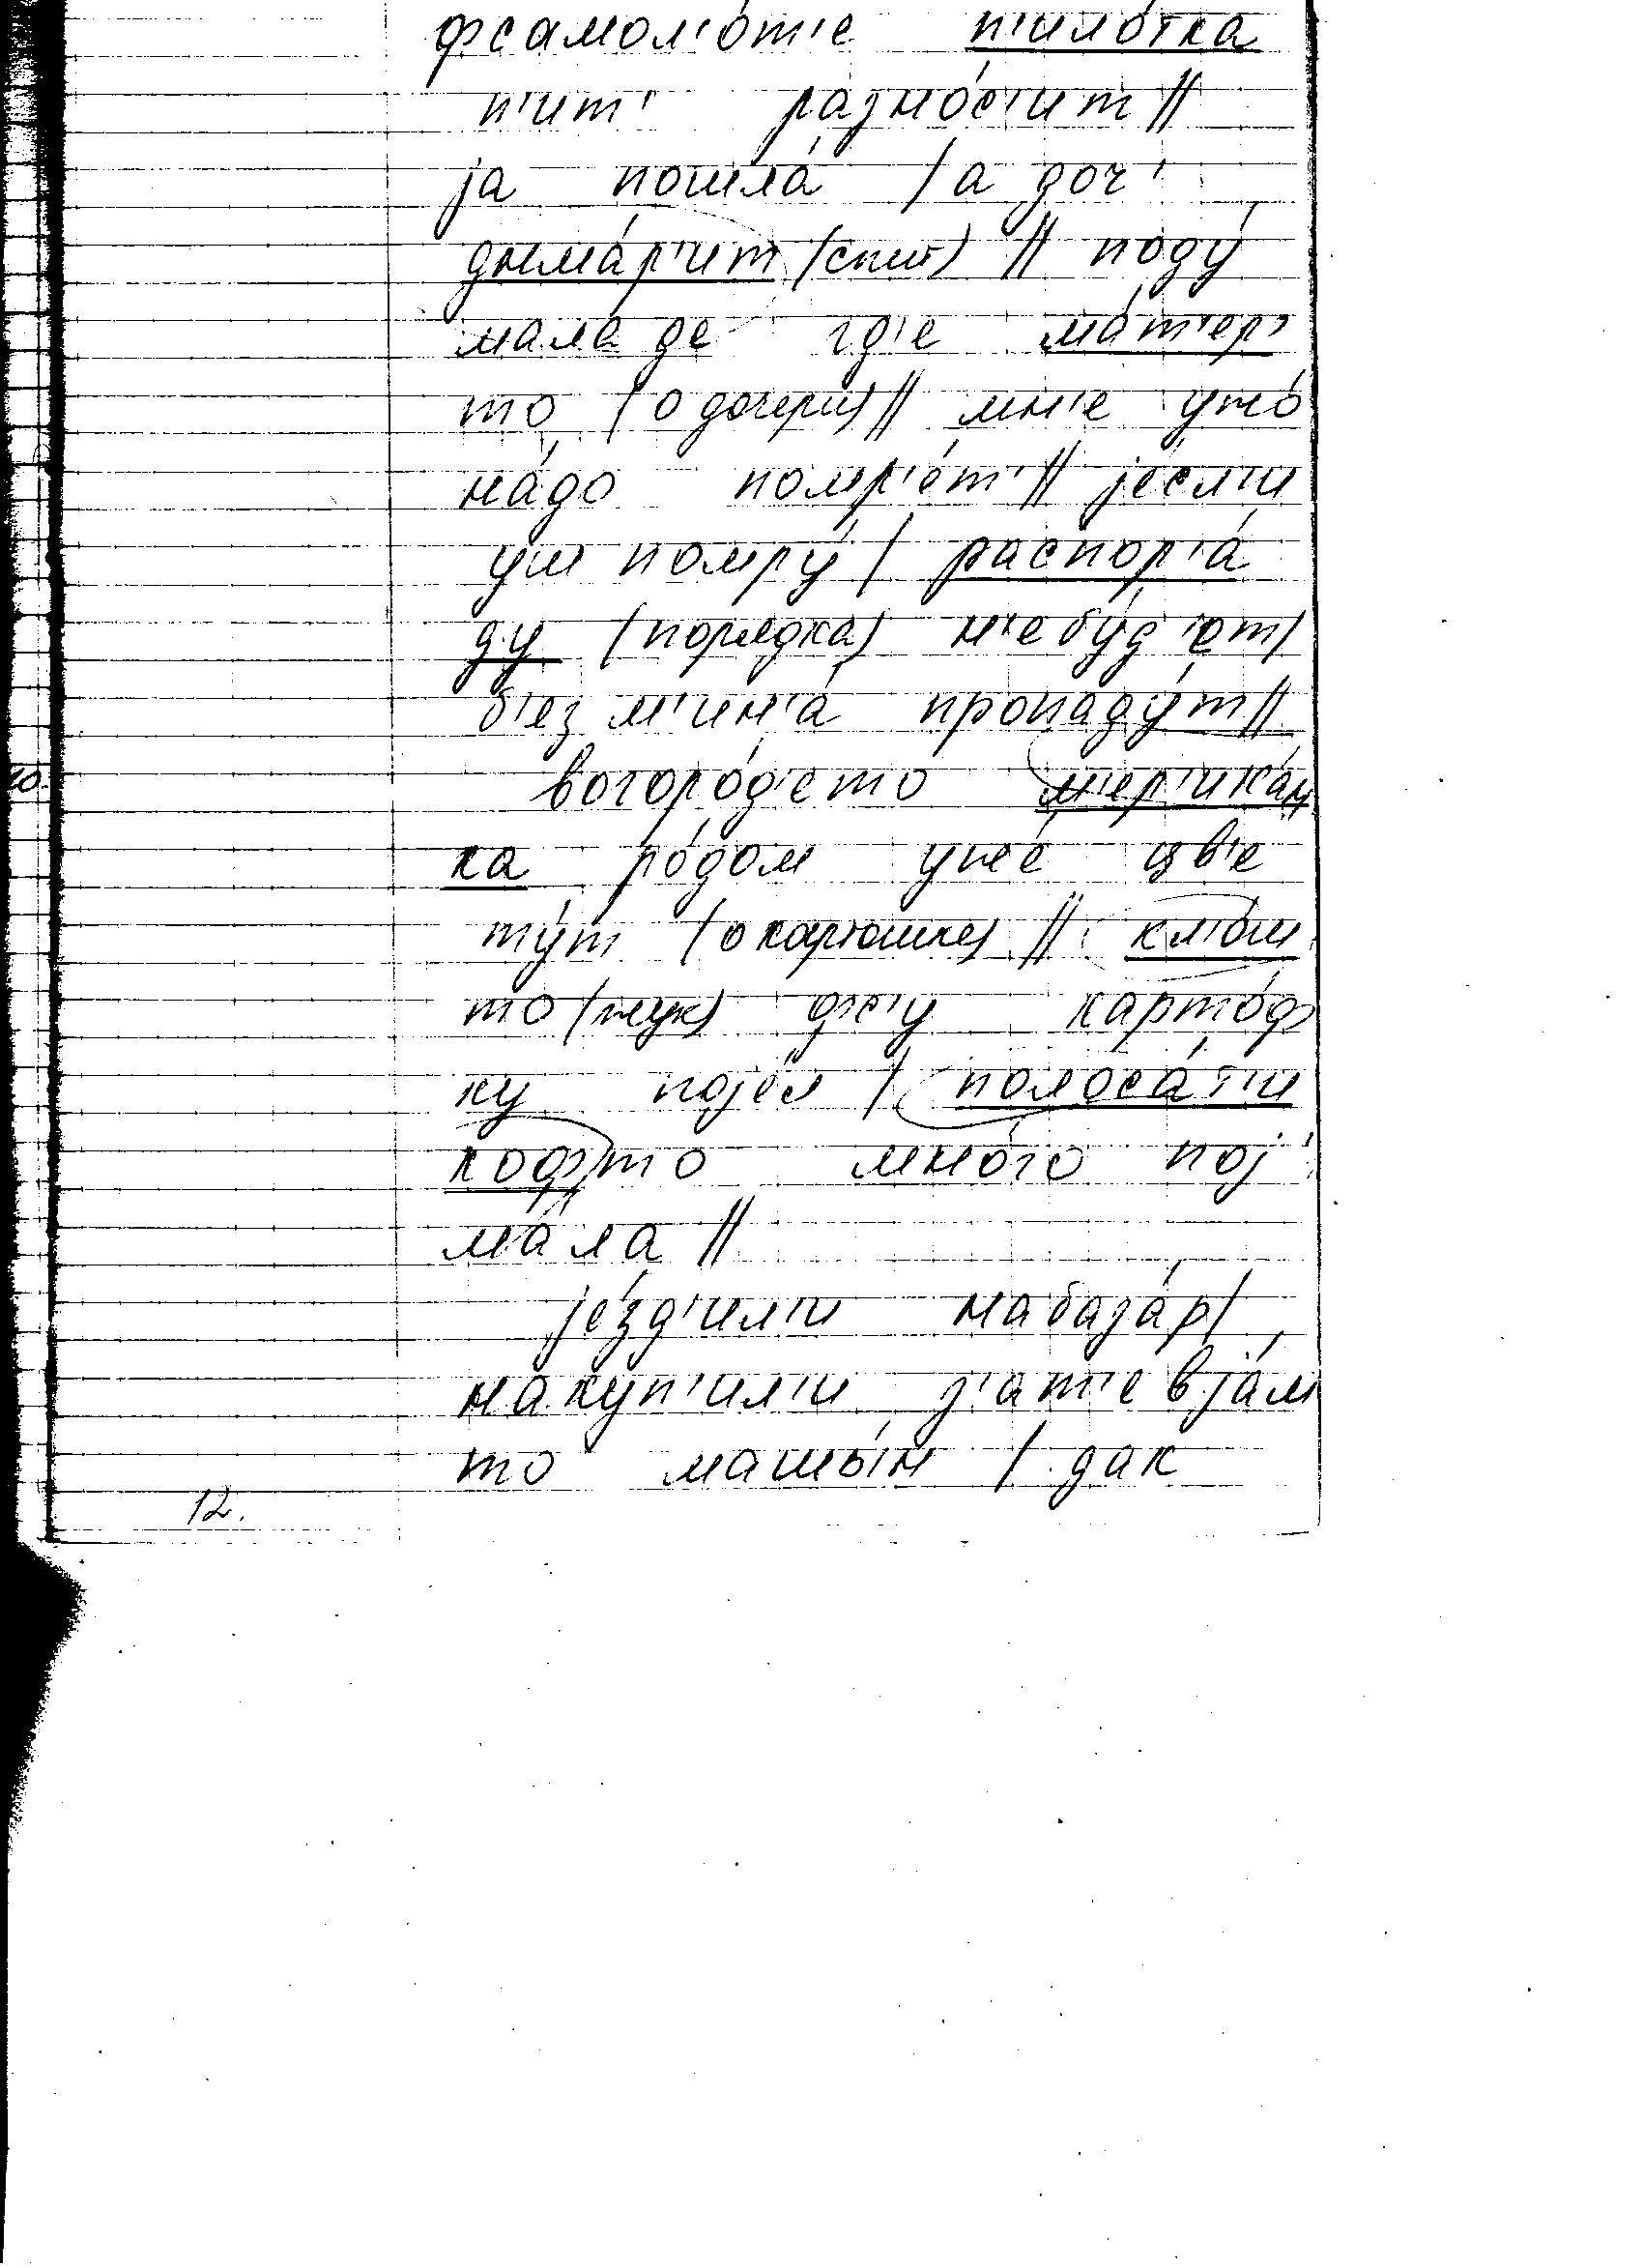 фсамол'о́т'е п'ило́тка
п'ит' разно́с'ит //
ја пошла́ / а доч'
дыма́р'ит (спит) // поду́
мала де гд'е ма́т'ер'
то (о дочери) // мн'е ужо́
на́до помр'е́т' // је́сл'и
уш помру́ / распор'а́
ду (порядка) н'ебу́д'от /
б'ез м'ин'а́ пропаду́т //
вогоро́д'ето м'ер'ика́н
ка ро́дом уже́ цв'е
ту́т (о картошке) // кл'о́ш
то (жук) фс'у карто́ф
ку поје́л / полоса́т'и
коф то мно́го пој
ма́ла //
је́зд'ил'и набаза́р /
накуп'ил'и з'ат'евја́м
то машы́н / дак
10.
12.